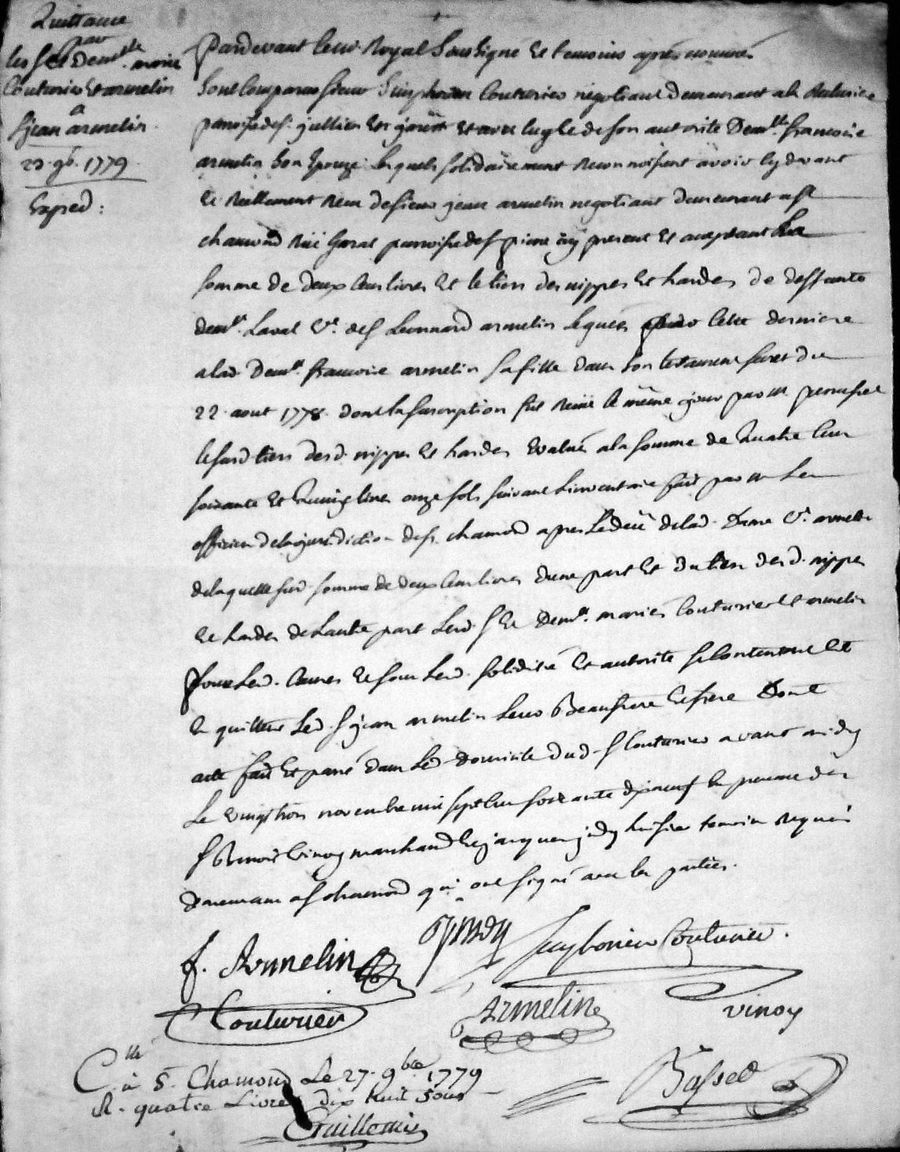 Quittance
par
les s. et dem.lle mariés
Couturier et armelin
a
s. jean armelin
23 9b. 1779
Exped:
Pardevant le no.re Royal Soussigné et temoins après nommés
sont comparus sieur Simphorien Couturier negotiant demeurant a la
paroisse de s. jullien en jarêt et avec luy et de son autorité Dem.lle françoise
armelin son Epouze lesquels solidairement reconnoissent avoir cy devant
et reellement reçu de sieur jean armelin negotiant demeurant a st
chamond rüe paroisse de s. pierre icy present et acceptant la
somme de deux cens livres et le tiers des nippes et hardes de deffunte
dem.lle Laval v.e de s. Leonnard armelin legués par cette derniere
a lad. Dem.lle francoise armelin sa fille dans son testament secret du
22 aout 1778 dont la suscription fut reçüe le même jour par m.
lesurd. tiers desd. nippes et hardes evalué a la somme de quatre cens
soixante et quinze livres onze sols suivant l'inventaire fait par m. les
officiers de la jurisdiction de s. chamond apres le decès de lad. Dame v.e armelin
de laquelle sud. somme de deux cens livres d'une part et du tiers desd. nippes
et hardes de l'autre part lesd. s. et Dem.lle mariés Couturier et armelin
sous led. solidité et autorité se contentent et
en quittent led. s. jean armelin leur Beaufrere et frere Dont
acte fait et passé dans led. domicile dud. s. Couturier avant midy
le vingt trois novembre mil sept cens soixante dix neuf en presence de
s. Benoit Vinoy marchand et jacques temoins requis
demeurans a s. chamond qui ont signé avec les parties.
f. Armelin
Simphorien Couturier.
Couturier
Armelin
vinoy
C.lle à S. Chamond Le 27. 9bre 1779
R. quatre Livres dix huit sous
Basset
Guillemin